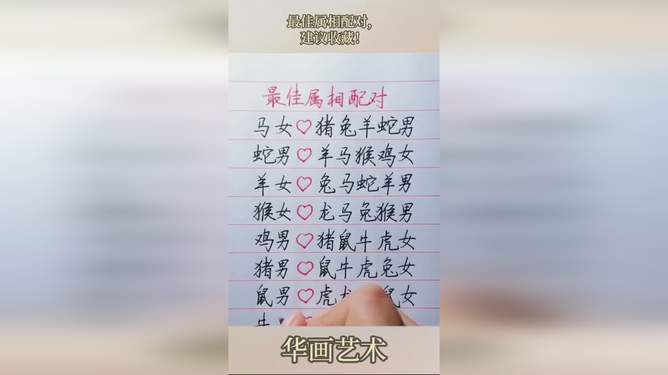 最佳属相配对,
建议收藏!
最佳属相配对
马女♡猪兔羊蛇男
蛇男♡羊马猴鸡女
羊女♡兔马蛇羊男
猴女♡龙马兔猴男
鸡男♡猪鼠牛虎女
猪男♡鼠牛虎兔女
鼠男♡虎龙鼠女
牛
华画艺术